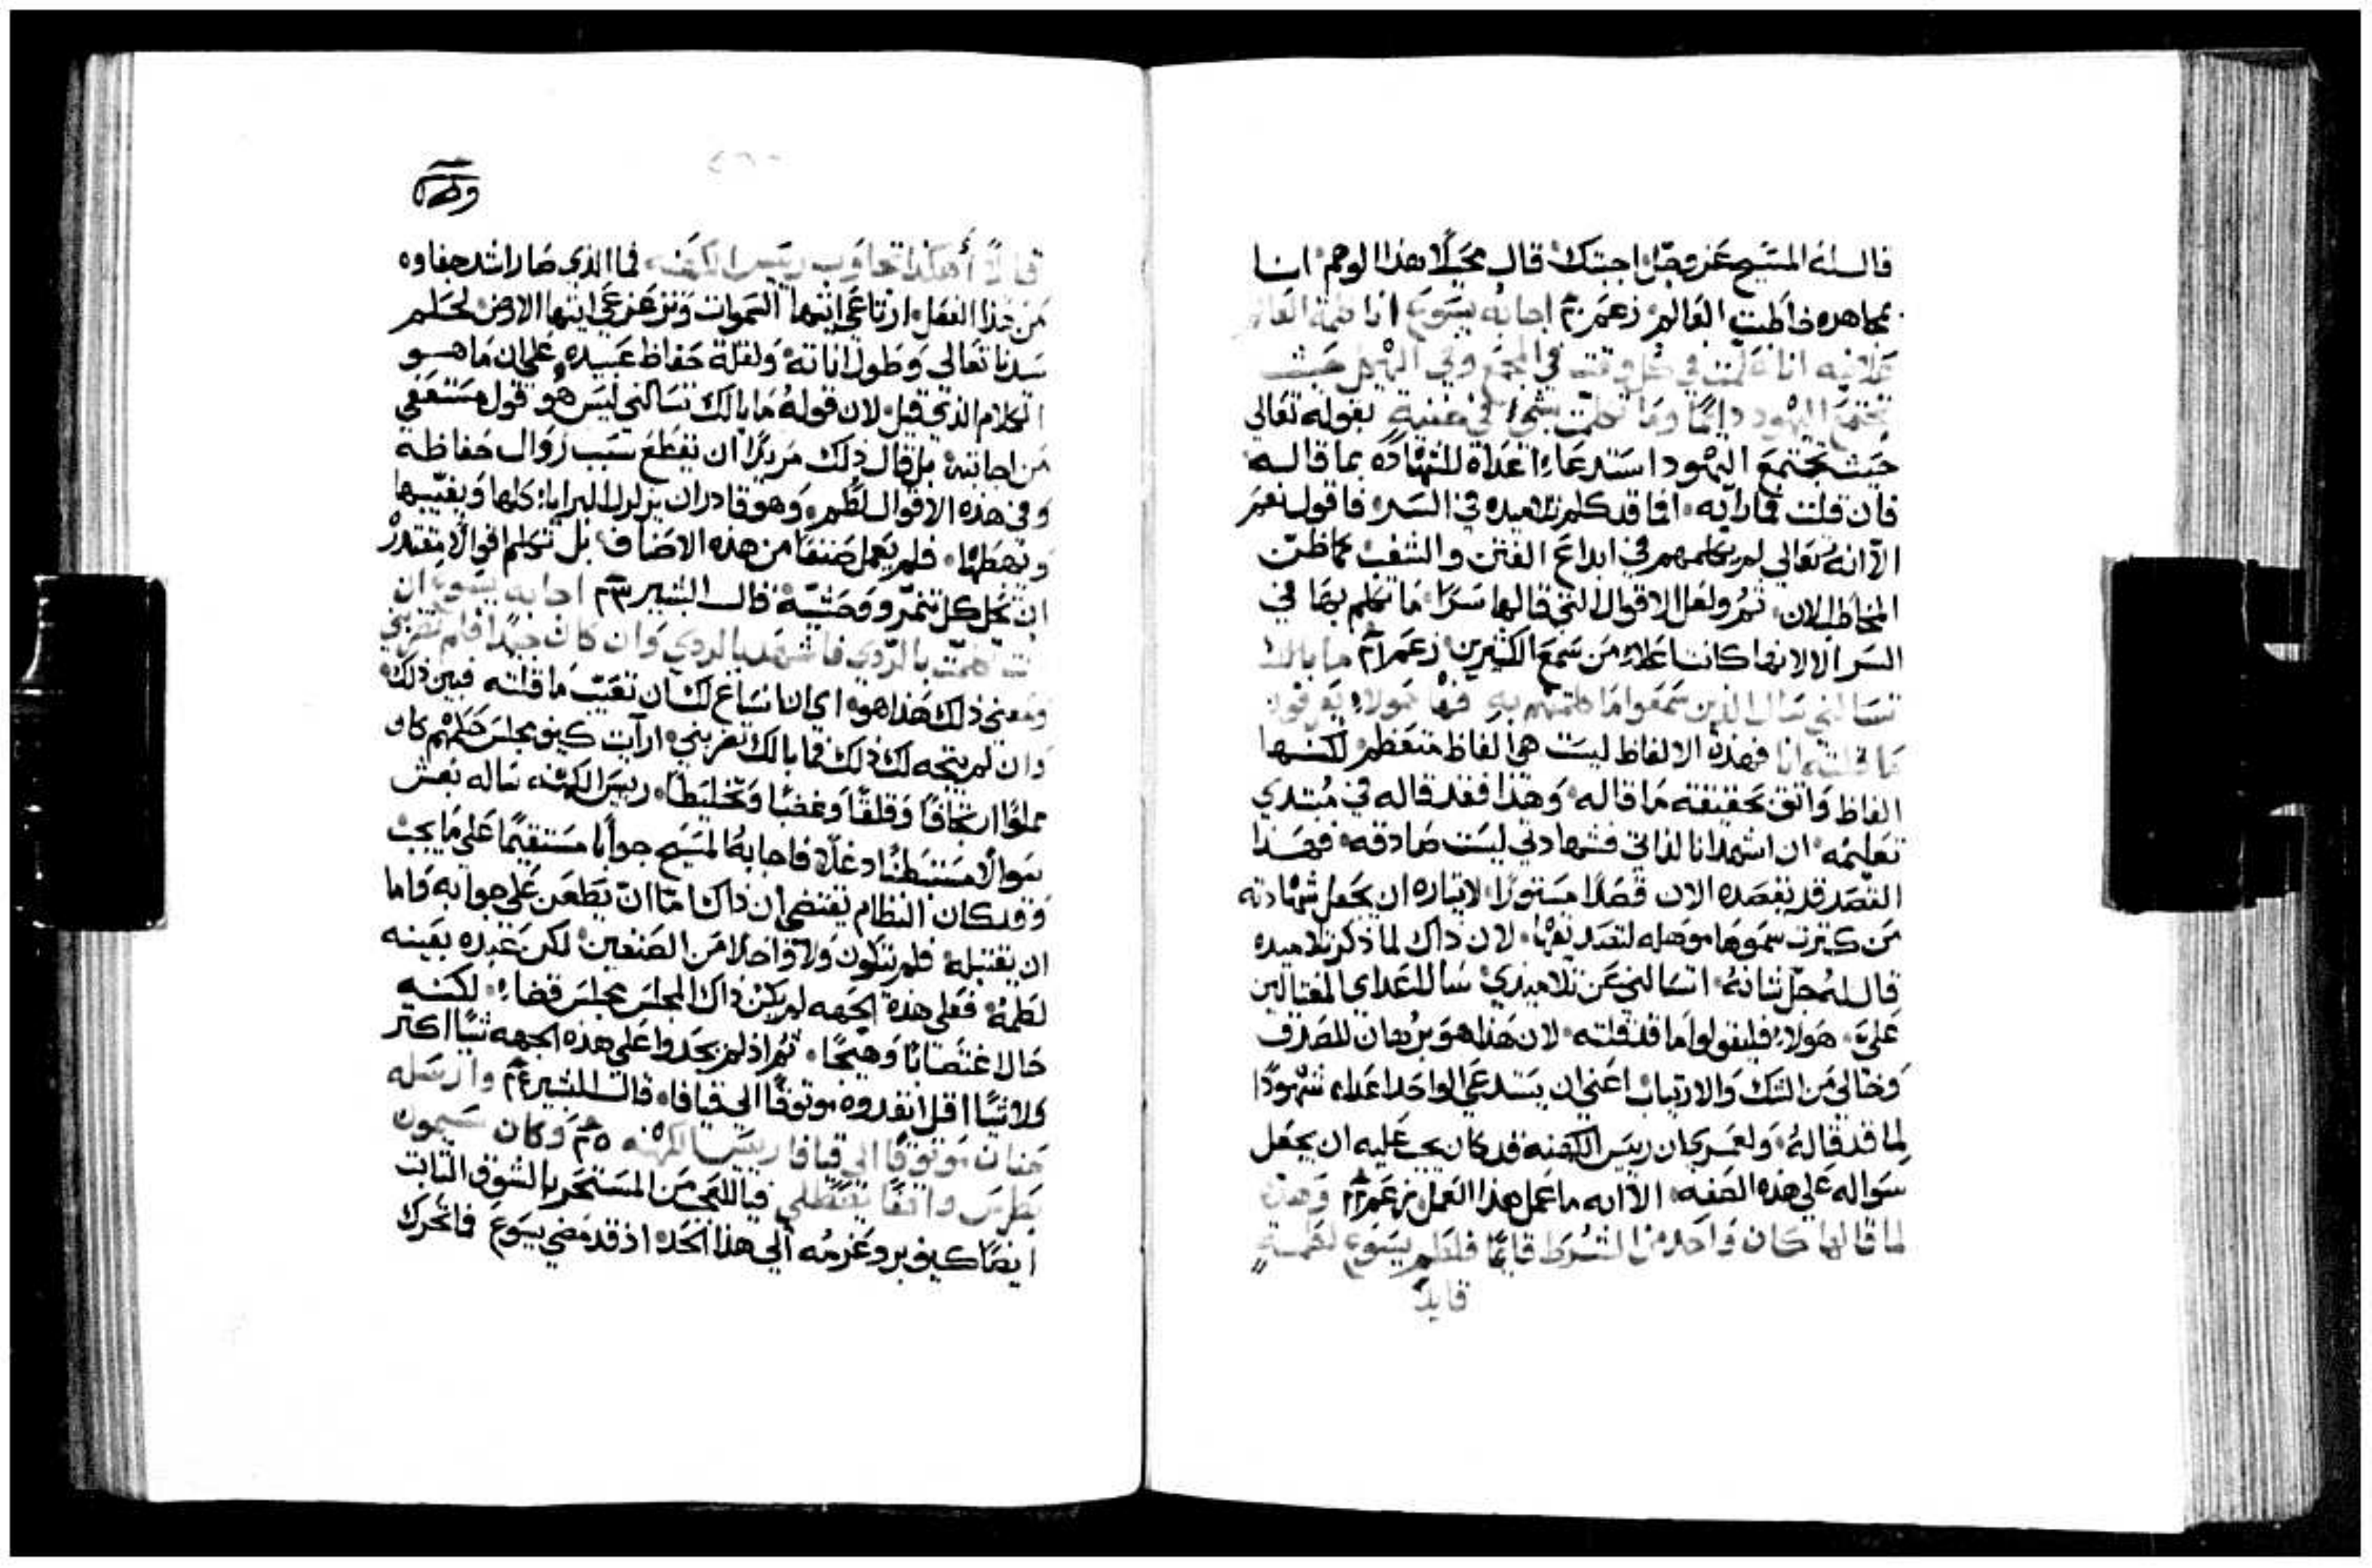 قال له المسيح عز وجل اجبتك قال مخيلا هذا الوهم انا
مجاهره خاطبت العالم زعم ٢٠ اجابه يسوع انا كلمة العالم
علانيه انا علمت في كل وقت في المجمع وفي الهيكل حيث
تجتمع اليهود دايما وما تكلمت بشي في خفية بقوله تعالى
حيث تجتمع اليهود استدعاء اعداه للشهاده بما قاله
فان قلت فما رايه افما قد كلم تلاميده في السر فاقول نعم
الا انه تعالى لم يكلمهم في ابداع الفتن والشغب كما ظن
المخاطب الان ثم ولعل الاقوال التي قالها سرا ما تكلم بها في
السر الا لانها كانت اعلا من سمع الكثيرين زعم ٢١ ما بالك
تسالني سال الذين سمعوا ما كلمتهم به فها هولاء يعرفون
ما قلته انا فهذه الالفاظ ليست هي الفاظ متعظم لكنها
الفاظ واثق بحقيقته ما قاله وهذا فقد قاله في مبتدي
تعليمه ان اشهد انا لذاتي فشهادتي ليست صادقه فهذا
القصد قد يقصده الان قصدا مستورا لايتاره ان يجعل شهادته
من كثرت سموها موهله لتصديقها لان ذاك لما ذكر تلاميده
قال له جل شانه اتسالني عن تلاميدي سال اعداي المغتالين
علي هولاء فليقولوا ما قد قلته لان هذا هو برهان للصدق
وخالي من الشك والارتياب اعني ان يستدعي الواحد اعداه شهودا
لما قد قاله ولعمري كان رييس الكهنه قد كان يجب عليه ان يجعل
سواله على هذه الصفه الا انه ما عمل هذا العمل زعم ٢٢ وهذه
لما قالها كان واحد من الشرط قايما فلطم يسوع لطمة
قايلا
قايلا أهكذا تجاوب رييس الكهنه فما الذي صار اشد جفاوه
من هذا الفعل ارتاعي ايتها السموات وتزعزعي ايتها الارض لحلم
سيدنا تعالى وطول اناته ولقلة حفاظ عبيده على ان ما هو
الكلام الذي قيل لان قوله ما بالك تسالني ليس هو قول مستعفي
من اجابته بل قال ذلك مريدا ان يقطع سبب زوال حفاظه
وفي هذه الاقوال لطم وهو قادر ان يزلزل البرايا كلها ويغيبها
ويهبطها فلم يعمل صنفا من هذه الاصناف بل تكلم اقوالا مقتدر
ان تحل كل تنمر ووحشية قال البشير ٢٣ اجابه يسوع ان
كنت تكلمت بالردي فاشهد بالردي وان كان جيدا فلم تضربني
ومعنى ذلك هذا هو اي ان انساغ لك ان تعيب ما قلته فبين ذلك
وان لم يتجه لك ذلك فما بالك تضربني ارآيت كيف مجلس حكمهم كان
مملوا ارتجافا وقلقا وغضبا وتخليطا رييس الكهنه ساله بغش
سوالا مستبطنا دغلا فاجابه المسيح جوابا مستقيما على ما يجب
وقد كان النظام يقتضي ان ذاك اما ان يطعن على جوابه واما
ان يقتبله فلم يتكون ولا واحدا من الصنفين لكن عبده بعينه
لطمه فعلى هذه الجهه لم يكن ذاك المجلس مجلس قضاء لكنه
حالا اغتصابا وهيجا ثم اذ لم يجدوا على هذه الجهه شيا اكثر
ولا شيا اقل انفدوه موثوقا الي قيافا قال البشير ٢٤ وارسله
حنان موثوقا الى قيافا رييس الكهنه ٢٥ وكان سيمون
بطرس واقفا يصطلي فيا للعجب من المستحر بالشوق الثابت
ايضا كيف برد عزمه الي هذا الحد اذ قد مضي يسوع فاتحرك